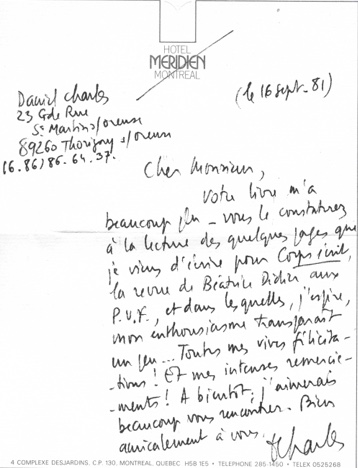 HOTEL
MERIDIEN
MONTREAL
(le 16 Sept. 81)
Daniel Charles
23 Gde Rue
St Martin s/oreuse
89260 Thorigny s/oreuse
(6.86) 86.64.37.
Cher Monsieur,
Votre livre m'a
beaucoup plu – vous le constaterez
à la lecture des quelques pages que
je viens d'écrire pour Corps écrit,
la revue de Béatrice Didier aux
P.U.F., et dans lesquelles, j'espère,
mon enthousiasme transparaît
un peu... Toutes mes vives félicita-
tions ! Et mes intenses remercie-
ments ! A bientôt ; j'aimerais
beaucoup vous rencontrer. Bien
amicalement à vous,
DCharles
4 COMPLEXE DESJARDINS, C.P. 130, MONTREAL, QUEBEC H5B 1E5 • TELEPHONE 285-1450 • TELEX 0525268